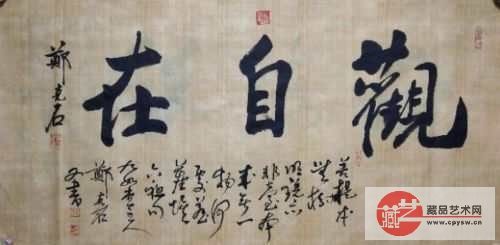 觀自在
鄭克石
菩提本
無樹
明鏡亦
非臺本
來無一
物何
處惹
塵埃
六祖句
鄭克石
又書
藏艺
藏品艺术网
www.cpysw.cn